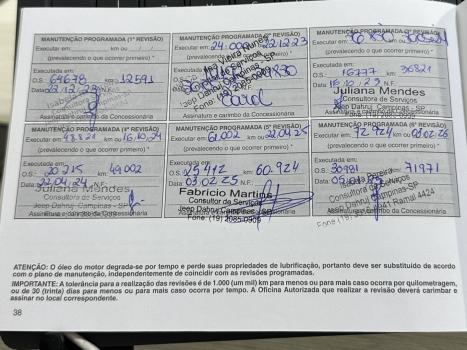 MANUTENÇÃO PROGRAMADA (1ª REVISÃO)
Executar em: km ou
(prevalecendo o que ocorrer primeiro) *
Executada em:
O.S.: 64678 km: 12591
Data: N.F.
Assinatura e carimbo da Concessionária
MANUTENÇÃO PROGRAMADA (2ª REVISÃO)
Executar em: 24.000 22.12.23
(prevalecendo o que ocorrer primeiro) *
Executada em:
Carol
Assinatura e carimbo da Concessionária
MANUTENÇÃO PROGRAMADA (3ª REVISÃO)
(prevalecendo o que ocorrer primeiro) *
Executada em:
O.S.: 16777 36821
Data: N.F.
Juliana Mendes
Consultora de Serviços
Jeep Dahruj Campinas - SP
Assinatura e carimbo da Concessionária
MANUTENÇÃO PROGRAMADA (4ª REVISÃO)
Executar em: 48.821 km ou 16.10.24
(prevalecendo o que ocorrer primeiro) *
Executada em:
O.S.: 20215 km: 49.002
Data: 22.04.24 N.F.
Juliana Mendes
Consultora de Serviços
Jeep Dahruj Campinas - SP
Assinatura e carimbo da Concessionária
MANUTENÇÃO PROGRAMADA (5ª REVISÃO)
Executar em: 61.002 km ou 22.04.25
(prevalecendo o que ocorrer primeiro) *
Executada em:
O.S.: 25412 km: 60.924
Data: 03.02.25 N.F.
Fabrício Martins
Consultor de Serviços
Jeep Dahruj Campinas - SP
Fone: (19) 2085-0909
Assinatura e carimbo da Concessionária
MANUTENÇÃO PROGRAMADA (6ª REVISÃO)
Executar em: 72.924 km ou 03.02.26
(prevalecendo o que ocorrer primeiro) *
Executada em:
O.S.: 30981 71971
Jeep Dahruj Campinas - SP
Ramal 4424
Assinatura e carimbo da Concessionária
ATENÇÃO: O óleo do motor degrada-se por tempo e perde suas propriedades de lubrificação, portanto deve ser substituído de acordo
com o plano de manutenção, independentemente de coincidir com as revisões programadas.
IMPORTANTE: A tolerância para a realização das revisões é de 1.000 (um mil) km para menos ou para mais caso ocorra por quilometragem,
ou de 30 (trinta) dias para menos ou para mais caso ocorra por tempo. A Oficina Autorizada que realizar a revisão deverá carimbar e
assinar no local correspondente.
38